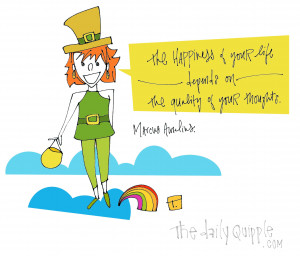 The HAPPINESS of your life
depends on
the quality of your thoughts.
Marcus Aurelius.
The daily Quipple
.COM